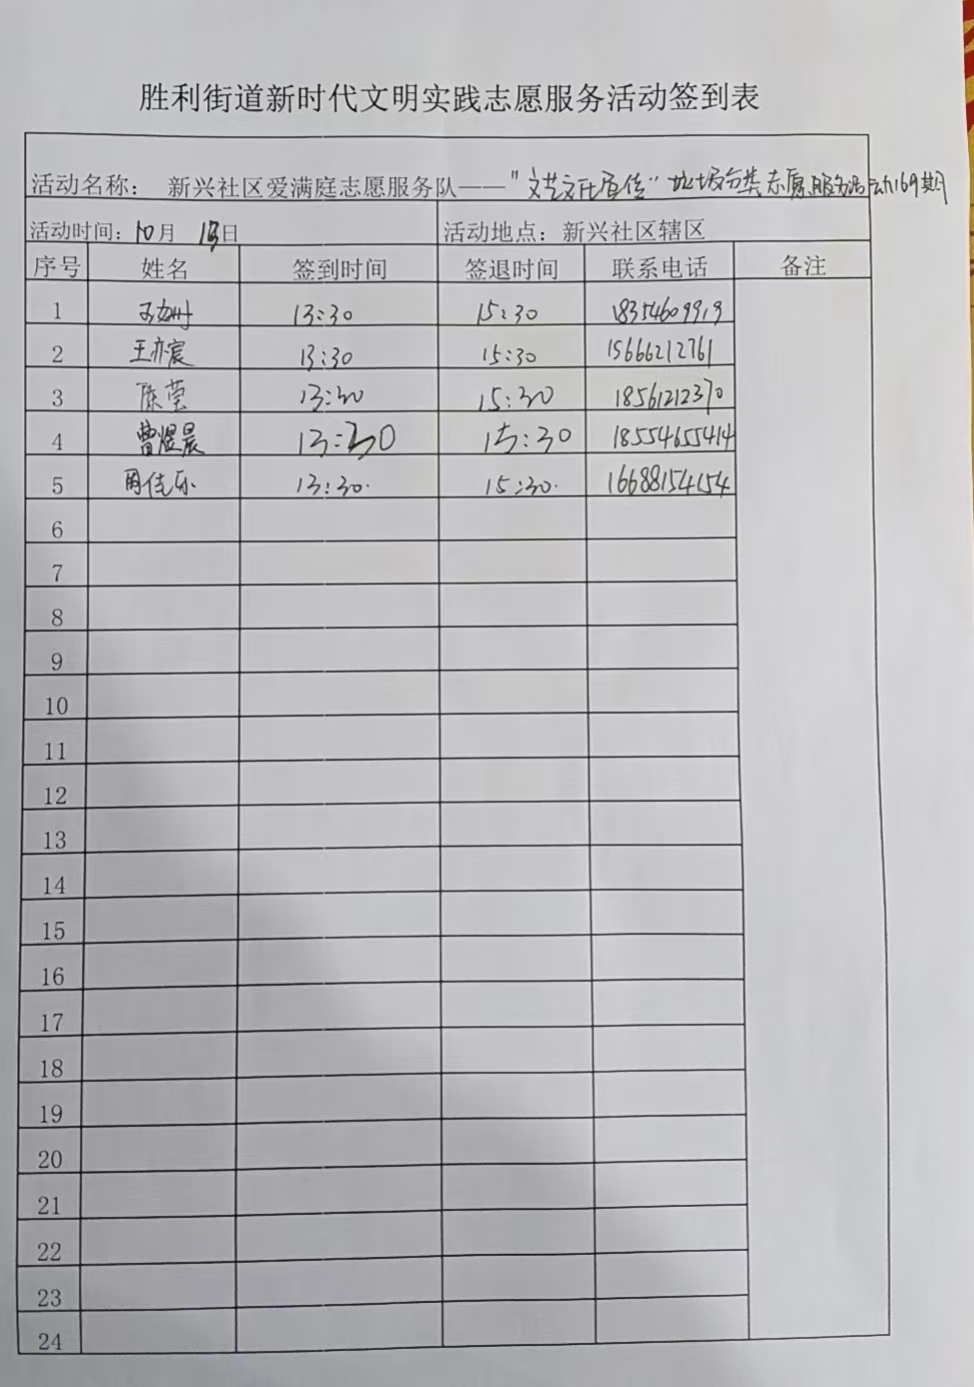 胜利街道新时代文明实践志愿服务活动签到表
活动名称： 新兴社区爱满庭志愿服务队——"文艺文化宣传"垃圾分类志愿服务活动169期
活动时间：10月 13日 活动地点：新兴社区辖区
序号 姓名 签到时间 签退时间 联系电话 备注
1 13:30 15:30 18354609919
2 王亦宸 13:30 15:30 15666212761
3 陈莹 13:30 15:30 18561212370
4 曹煜晨 13:30 15:30 18554655414
5 周佳乐 13:30. 15:30. 16688154154
6
7
8
9
10
11
12
13
14
15
16
17
18
19
20
21
22
23
24